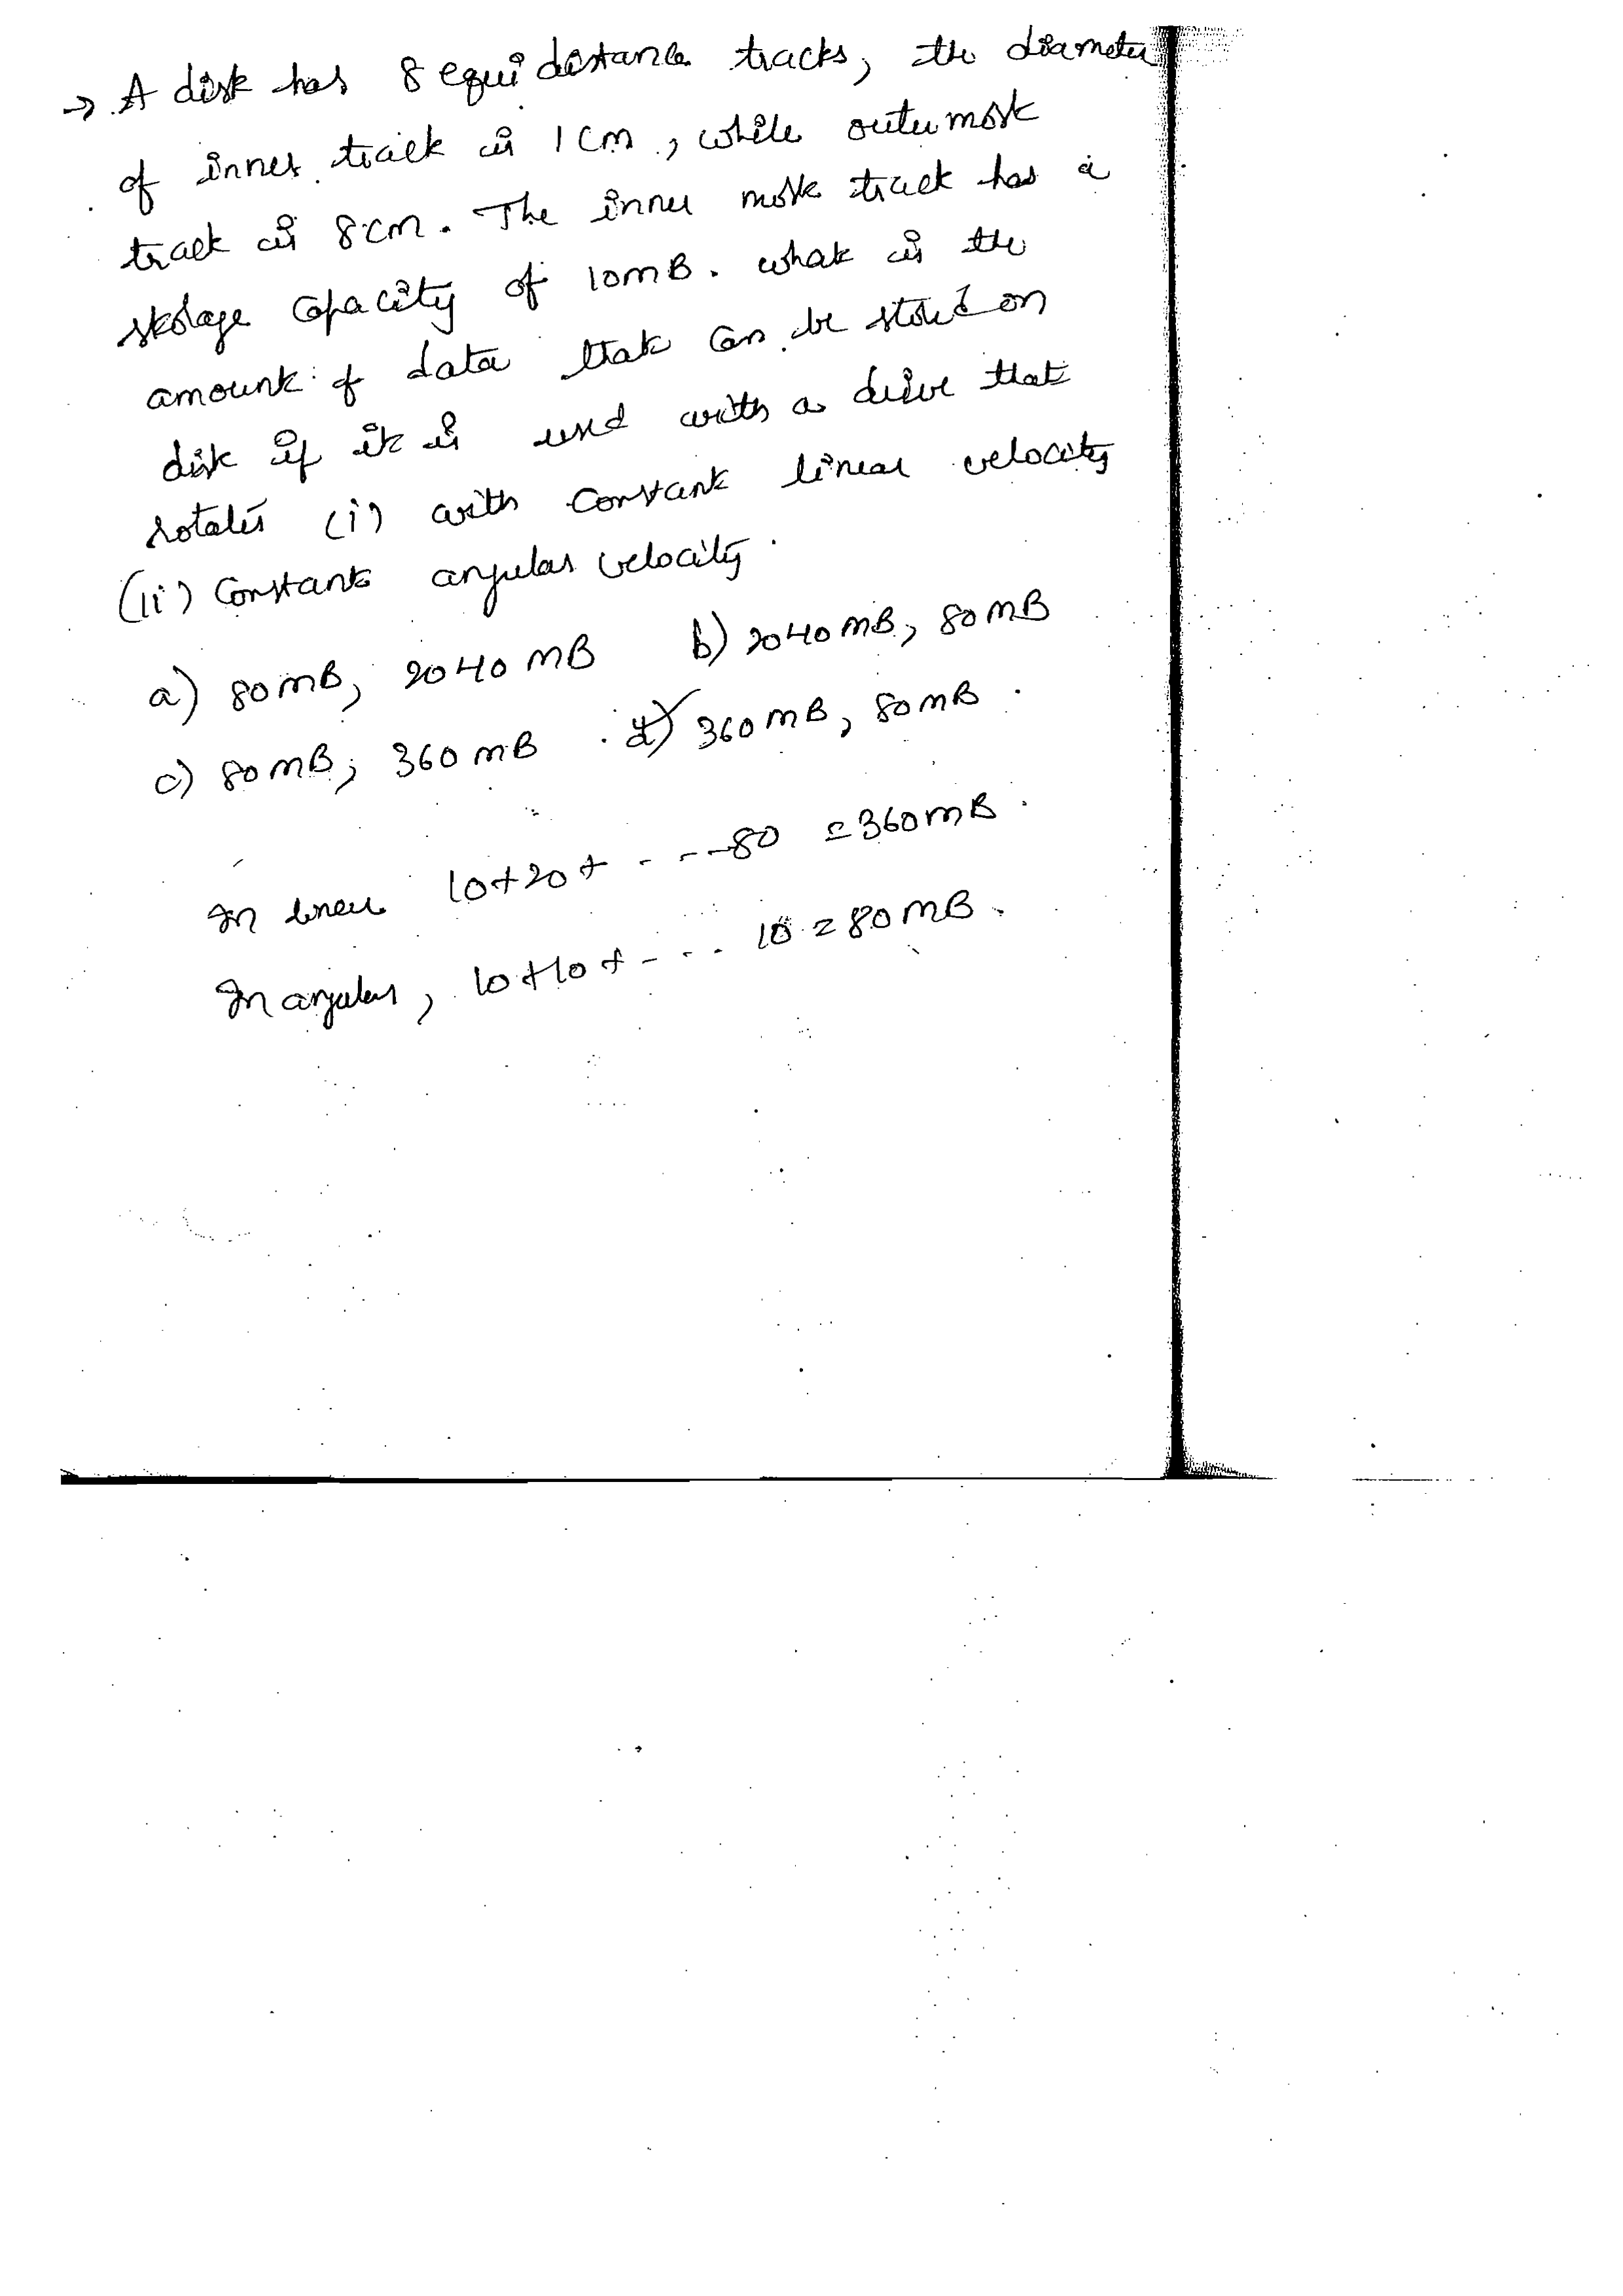 → A disk has 8 equi distance tracks, the diameter
of inner track is 1 cm, while outermost
track is 8cm. The inner most track has a
storage capacity of 10MB. what is the
amount of data that can be stored on
disk if it is used with a drive that
rotates (i) with constant linear velocity
(ii) constant angular velocity.
a) 80MB, 2040 MB b) 2040MB, 80MB
c) 80MB, 360MB d) 360MB, 80MB.
In linear 10+20+ - - - 80 = 360MB.
In angular, 10+10+ - - - 10 = 80MB.